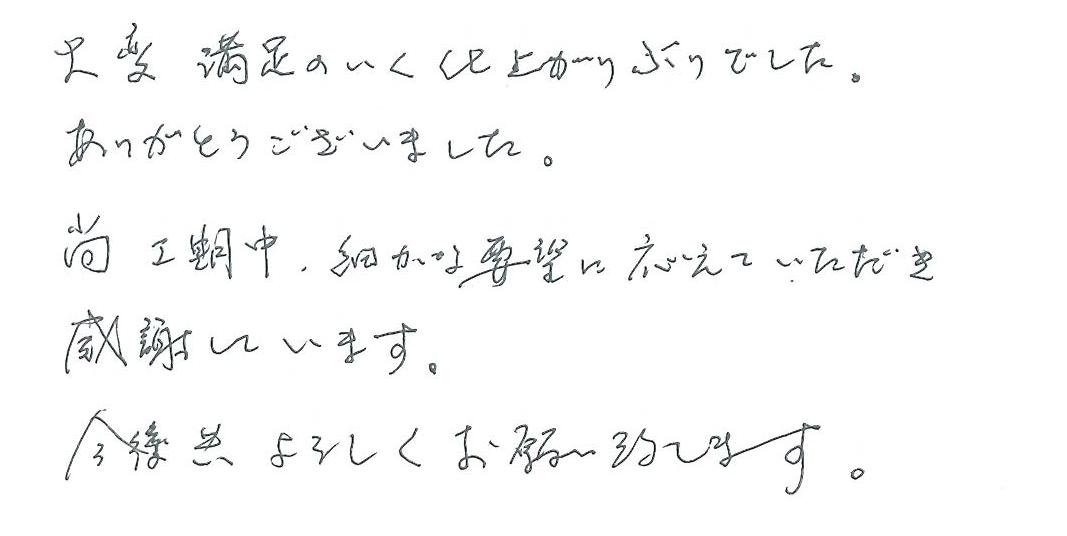 大変 満足のいく仕上がりぶりでした。
ありがとうございました。
尚 工期中、細かな要望に応えていただき
感謝しています。
今後共よろしくお願い致します。